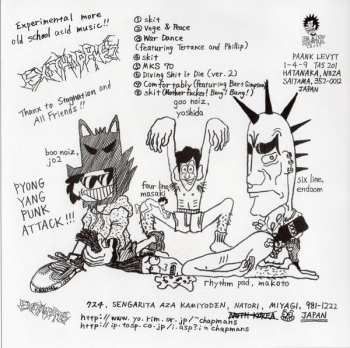 Experimental more
old school acid music!!
Thanx to Stagnation and
All Friends!!
① skit
② Voge & Peace
③ War Dance
(featuring Terrance and Phillip)
④ skit
⑤ MKS '90
⑥ Diving Shit It Die (ver. 2)
⑦ Comfortably (featuring Bart Simpson)
⑧ skit (Mother Fucker! Bang! Bang!)
PAANK LEVYT
1-4-9 TAS 201
HATANAKA, NIIZA
SAITAMA, 352-0012
JAPAN
goo noiz,
yoshida
boo noiz,
jo2
four line,
masaki
six line,
endoom
PYONG
YANG
PUNK
ATTACK!!!
rhythm pad, makoto
724, SENGARITA AZA KAMIYODEN, NATORI, MIYAGI, 981-1222
JAPAN
http://www.yo.rim.or.jp/~chapmans
http://ip.tosp.co.jp/i.asp?i=chapmans